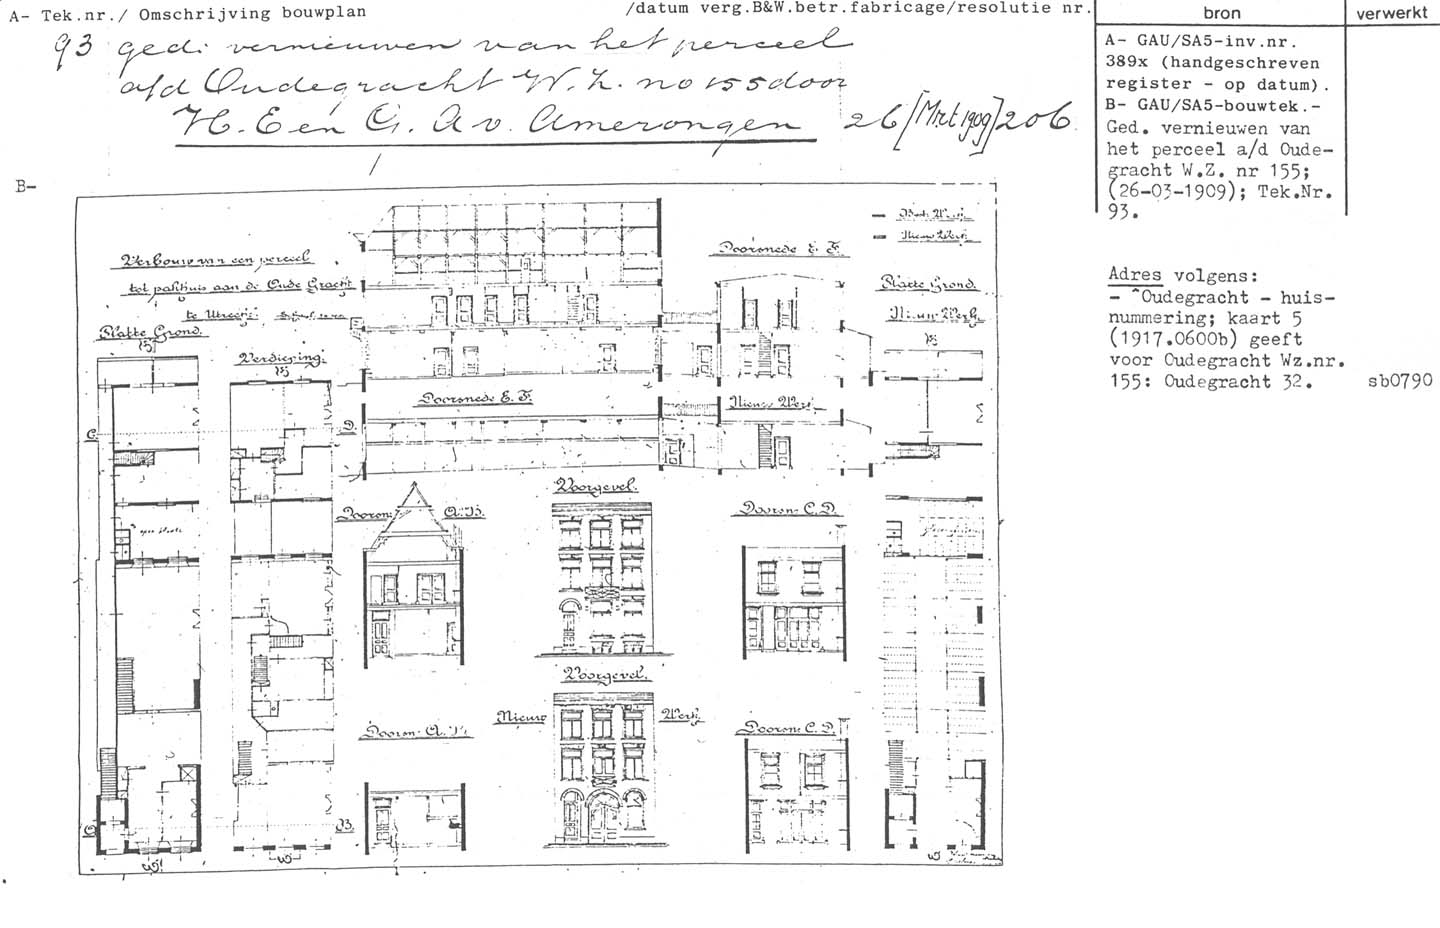 A- Tek.nr./ Omschrijving bouwplan /datum verg.B&W.betr.fabricage/resolutie nr.
bron
verwerkt
93 ged: vernieuwen van het perceel
a/d Oudegracht W.Z. no 155 door
H. E en G. A v. Amerongen 26 [Mrt 1909] 206
A- GAU/SA5-inv.nr.
389x (handgeschreven
register - op datum).
B- GAU/SA5-bouwtek.-
Ged. vernieuwen van
het perceel a/d Oude-
gracht W.Z. nr 155;
(26-03-1909); Tek.Nr.
93.
Adres volgens:
- ^Oudegracht - huis-
nummering; kaart 5
(1917.0600b) geeft
voor Oudegracht Wz.nr.
155: Oudegracht 32.
sb0790
B-
Verbouw van een perceel
tot pakhuis aan de Oude Gracht
te Utrecht.
Platte Grond.
Verdieping.
Doorsnede E. F.
Nieuw Werk
Doorsnede E. F.
Platte Grond.
Nieuw Werk
Doorsnede E. F.
Nieuw Werk
C. D.
Doorsn: A.B.
Voorgevel.
Doorsn: C.D.
Voorgevel.
Nieuw Werk
Doorsn: A.B.
Doorsn: C.D.
B.